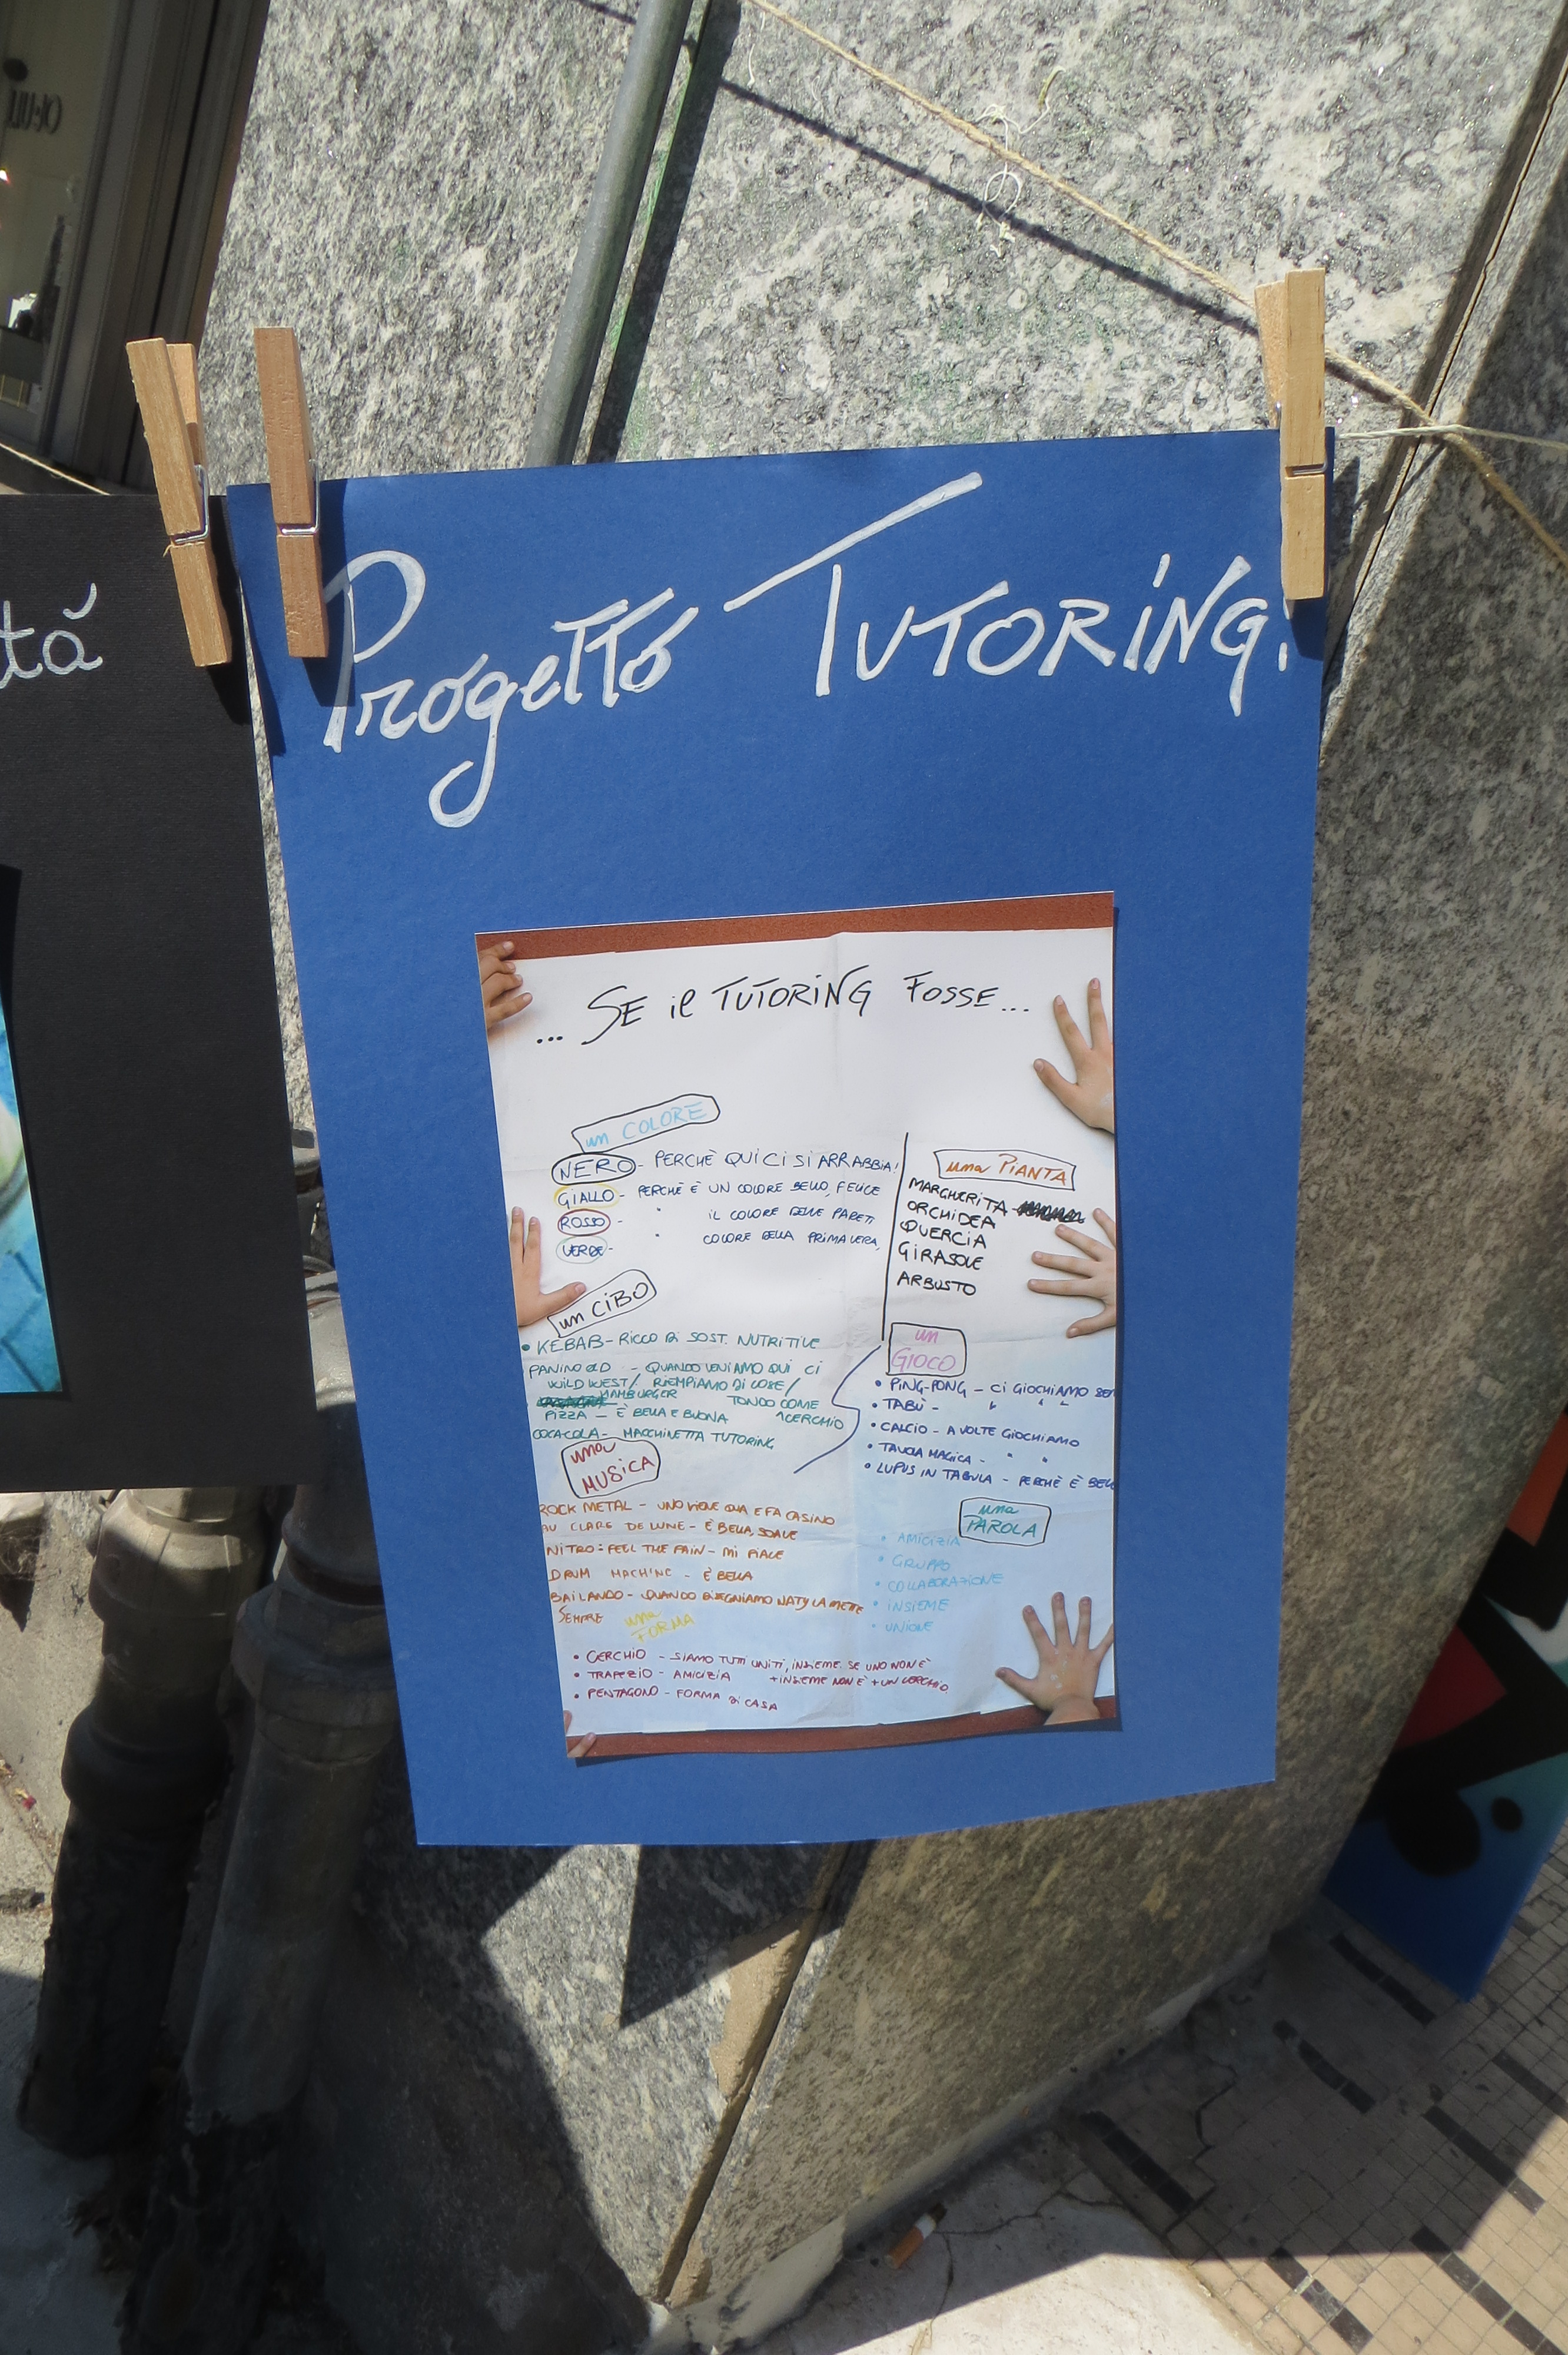 tá
Progetto TUTORING!
... SE il TUTORING FOSSE...
un COLORE
NERO - PERCHÈ QUI CI SI ARRABBIA!
GIALLO - PERCHÈ È UN COLORE BELLO, FELICE
ROSSO - " IL COLORE DELLE PARETI
VERDE - " COLORE DELLA PRIMAVERA,
una PIANTA
MARGHERITA
ORCHIDEA
QUERCIA
GIRASOLE
ARBUSTO
un CIBO
• KEBAB - RICCO DI SOST. NUTRITIVE
PANINO OLD - QUANDO VENIAMO QUI CI
WILD WEST/ RIEMPIAMO DI COSE/
HAMBURGER TONDO COME
PIZZA - È BELLA E BUONA CERCHIO
COCACOLA - MACCHINETTA TUTORING
un
GIOCO
• PING-PONG - CI GIOCHIAMO SE
• TABÙ - " " "
• CALCIO - A VOLTE GIOCHIAMO
• TAVOLA MAGICA - " "
• LUPUS IN TABULA - PERCHÈ È BELL
una
MUSICA
ROCK METAL - UNO VIENE QUA E FA CASINO
AU CLARE DE LUNE - È BELLA, SOAVE
NITRO: FEEL THE PAIN - MI PIACE
DRUM MACHINE - È BELLA
BAILANDO - QUANDO DISEGNIAMO NATY LA METTE
SEMPRE
una
PAROLA
• AMICIZIA
• GRUPPO
• COLLABORAZIONE
• INSIEME
• UNIONE
una
FORMA
• CERCHIO - SIAMO TUTTI UNITI, INSIEME. SE UNO NON È
+ INSIEME NON È + UN CERCHIO
• TRAPEZIO - AMICIZIA
• PENTAGONO - FORMA DI CASA